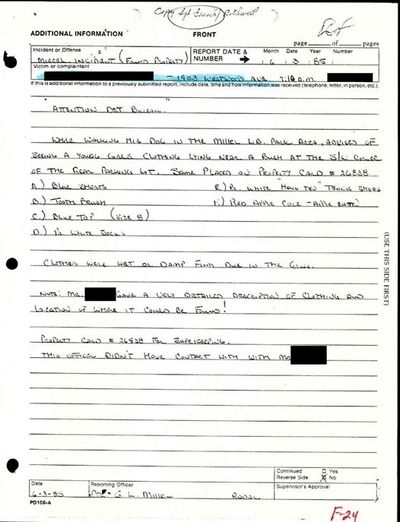 Copy Sgt
ADDITIONAL INFORMATION
FRONT
page of pages
Incident or Offense
Miscel. Incident (Found Property)
REPORT DATE & NUMBER
Month Date Year Number
6 3 85
Victim or complainant
Westwood Ave
If this is additional information to a previously submitted report, include date, time and how information was received (telephone, letter, in person, etc.).
"Attention Det Bureau."
While walking his dog in the Miller Lib. Park Area, advises of
seeing a young girls clothing lying near a bush at the S/E corner
of the Rear Parking lot. Same placed on Property Card # 26838
A.) Blue Shorts
E.) Pr. White "Tennis Shoes
B.) Tooth Brush
C.) Blue Top (Size 8)
D.) Pr White Socks
Clothes were wet or damp from due in the Grass.
Note: Mr. gave a very detailed description of clothing and
location of where it could be found!
Property Card # 26838 for safekeeping.
This officer didn't have contact with with Mr
(USE THIS SIDE FIRST)
Continued Yes
Reverse Side X No
Date
6-3-85
Reporting Officer
G. L. Miller
Supervisor's Approval
PD106-A
F-24